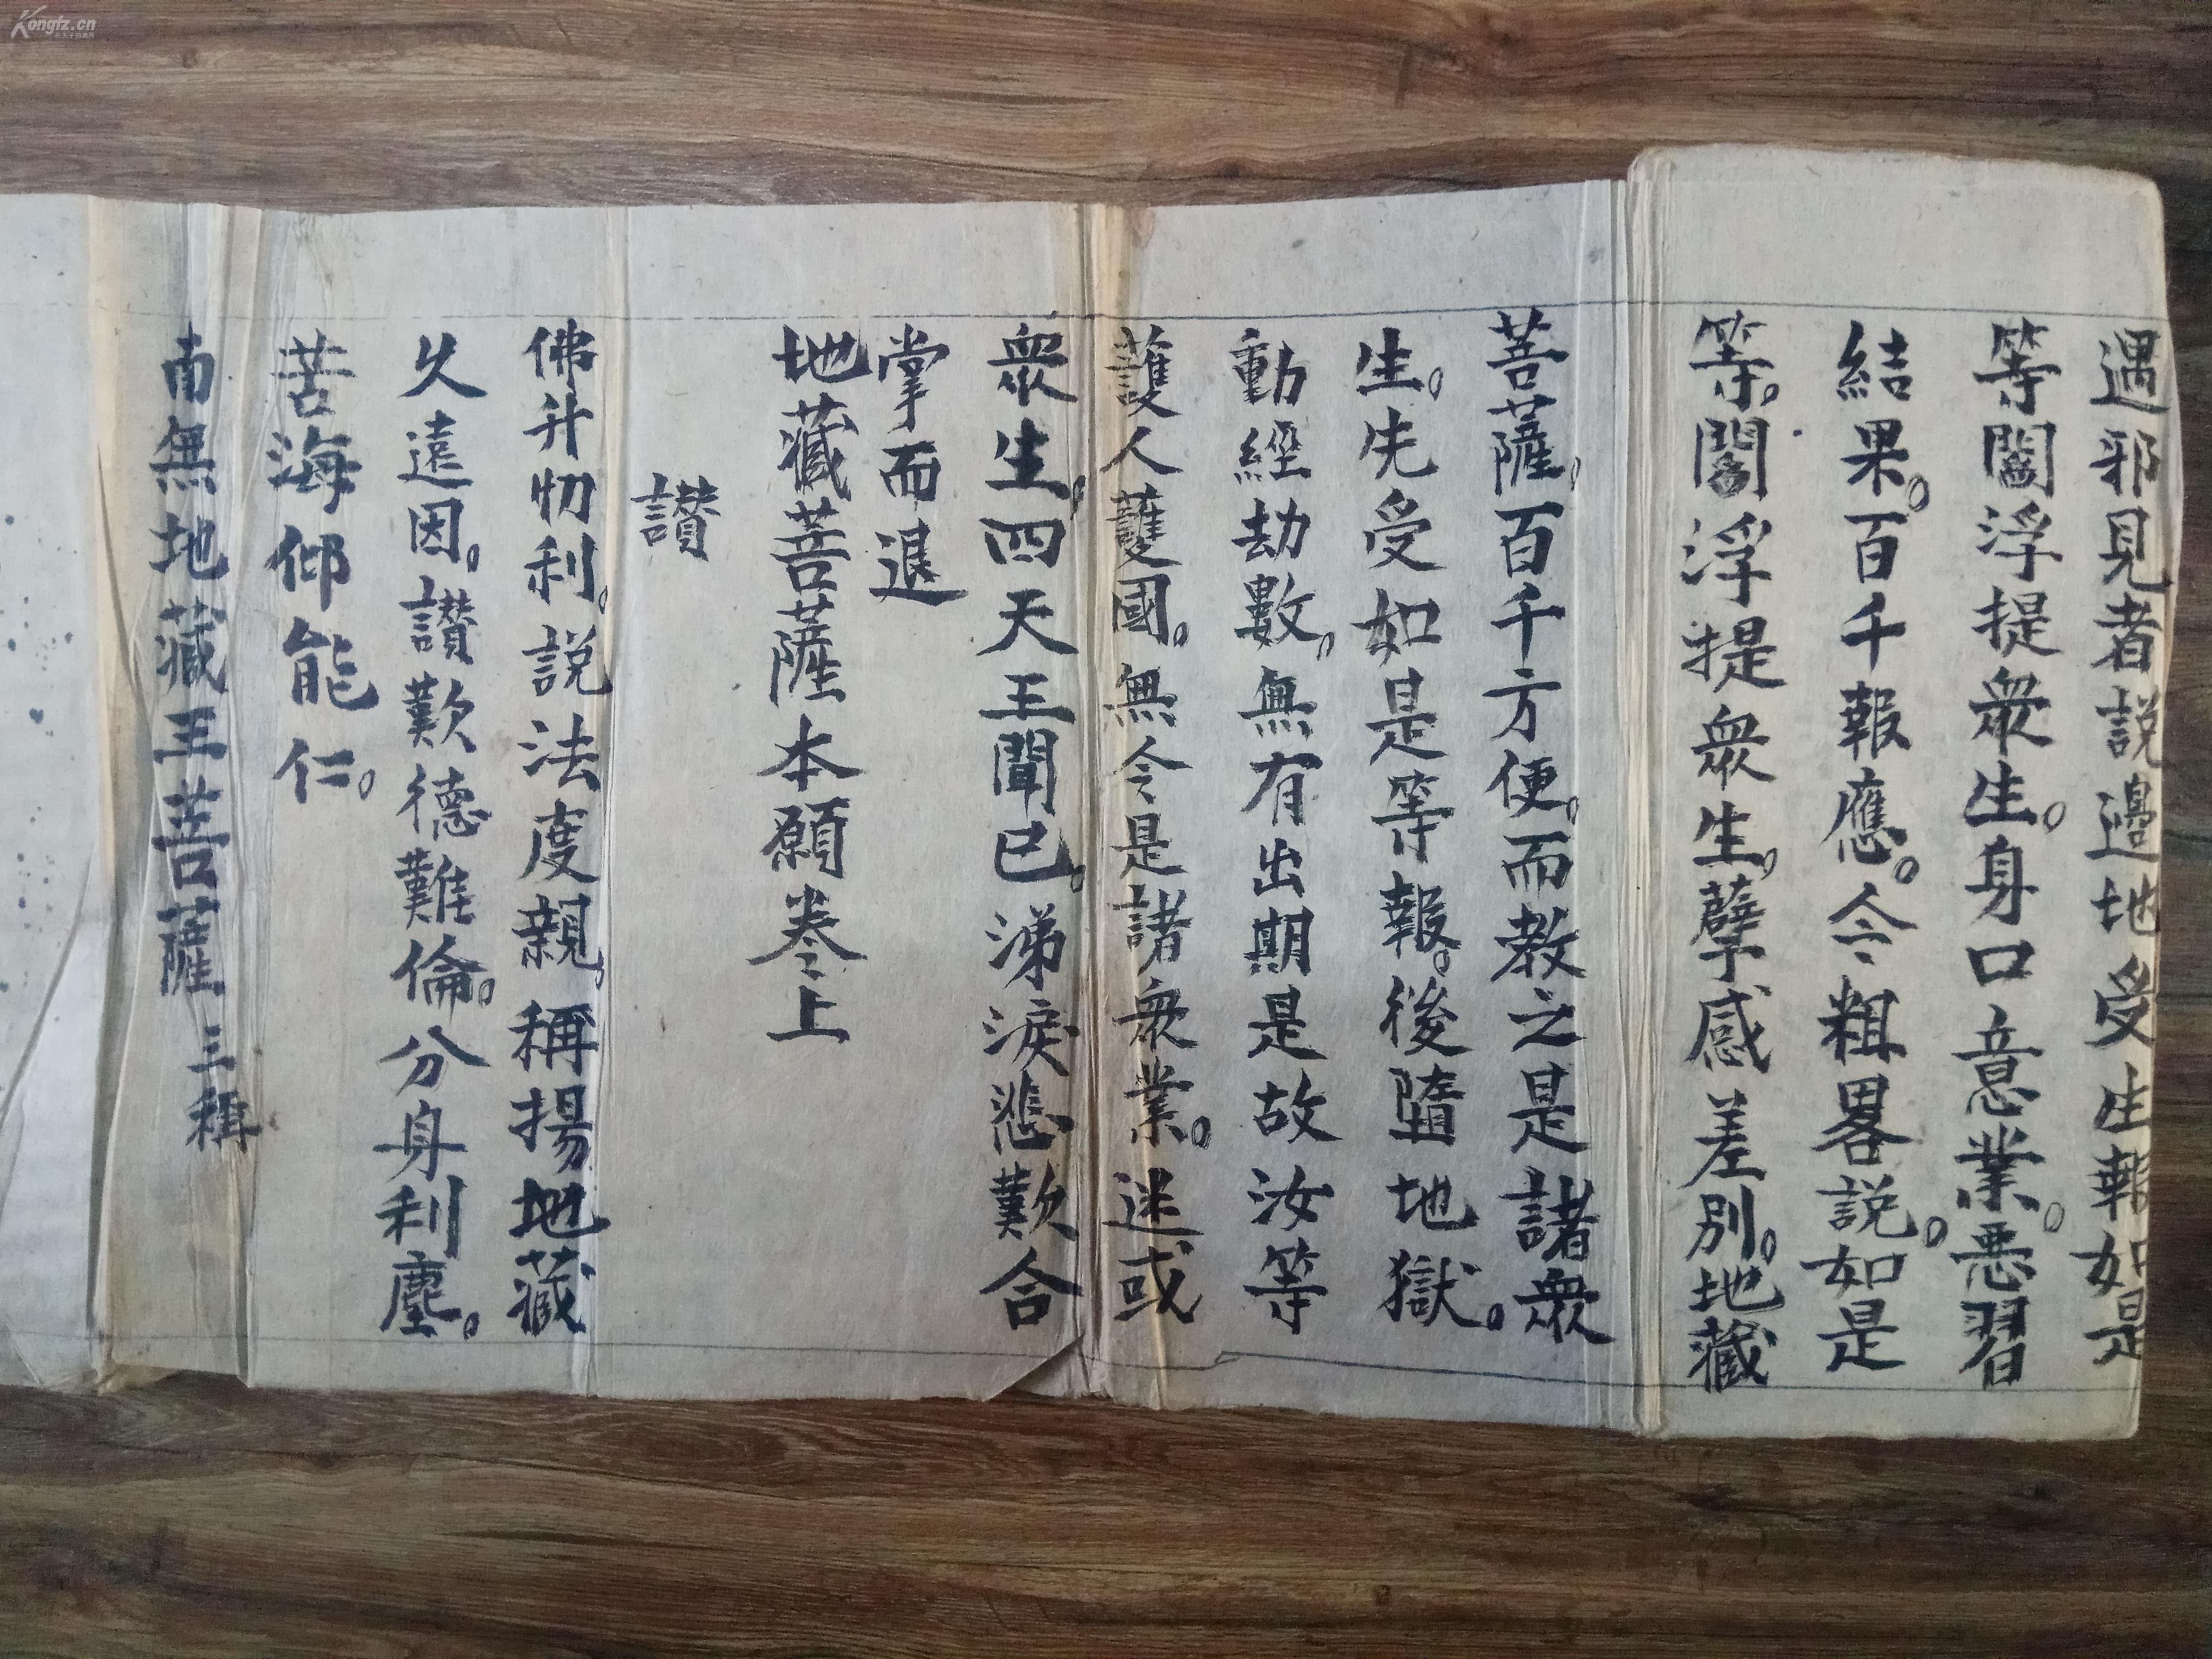 遇邪見者說邊地受生報如是
等閻浮提衆生。身口意業。惡習
結果。百千報應。今粗畧説如是
等。閻浮提衆生。孽感差别。地藏
菩薩。百千方便。而教之是諸衆
生。先受如是等報。後墮地獄。
動經劫數。無有出期是故汝等
護人護國。無令是諸衆業。迷或
衆生。四天王聞已。涕淚悲歎合
掌而退
地藏菩薩本願卷上
讃
佛升忉利。説法度親。稱揚地藏
久遠因。讃歎德難倫。分身利塵。
苦海仰能仁。
南無地藏王菩薩 三稱
Kongfz.cn